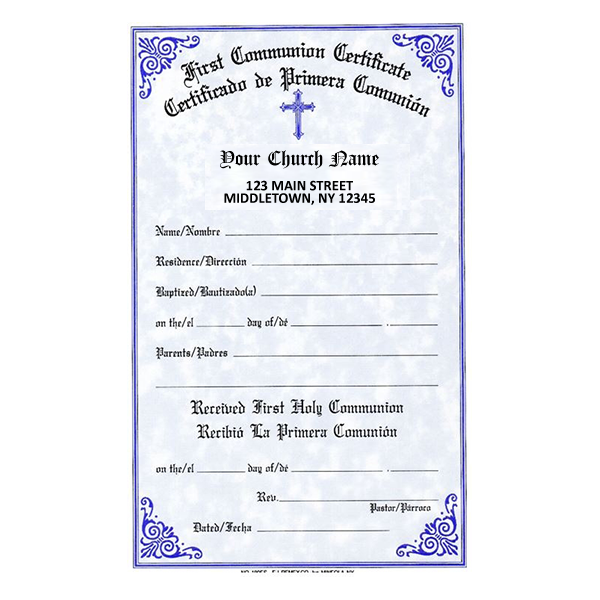 First Communion Certificate
Certificado de Primera Comunión
Your Church Name
123 MAIN STREET
MIDDLETOWN, NY 12345
Name/Nombre
Residence/Dirección
Baptized/Bautizado(a)
on the/el day of/dé .
Parents/Padres
Received First Holy Communion
Recibió La Primera Comunión
on the/el day of/dé .
Rev.
Pastor/Párroco
Dated/Fecha